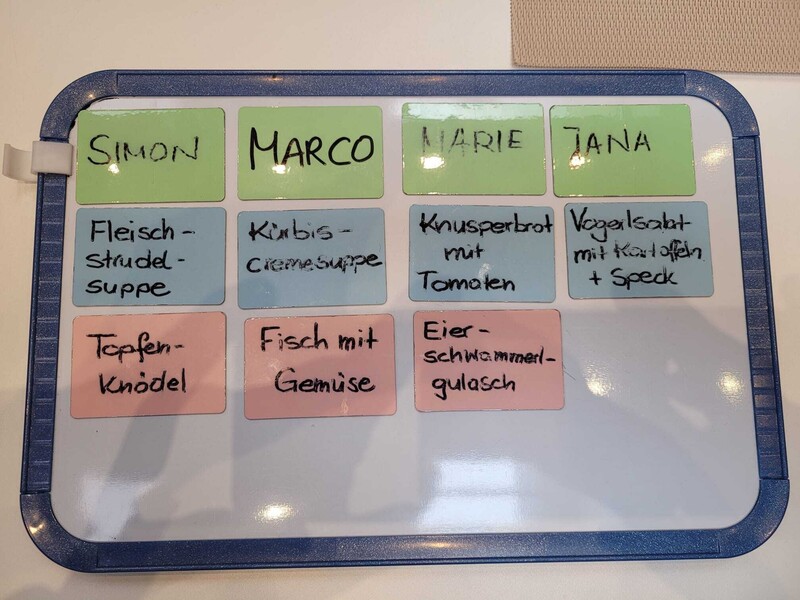 SIMON
MARCO
MARIE
JANA
Fleisch-
strudel-
suppe
Kürbis-
cremesuppe
Knusperbrot
mit
Tomaten
Vogerlsalat
mit Kartoffeln
+ Speck
Topfen-
knödel
Fisch mit
Gemüse
Eier-
schwammerl-
gulasch